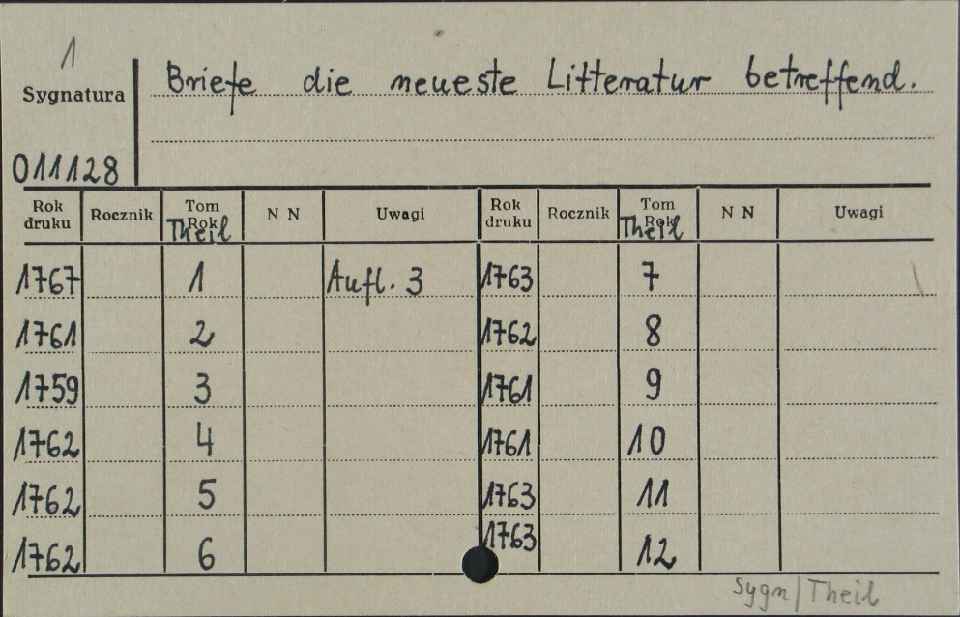 1
Sygnatura
Briefe die neueste Litteratur betreffend.
011128
Rok druku Rocznik Tom Rok Theil N N Uwagi Rok druku Rocznik Tom Rok Theil N N Uwagi
1767 1 Aufl. 3 1763 7
1761 2 1762 8
1759 3 1761 9
1762 4 1761 10
1762 5 1763 11
1762 6 1763 12
Sygn/Theil